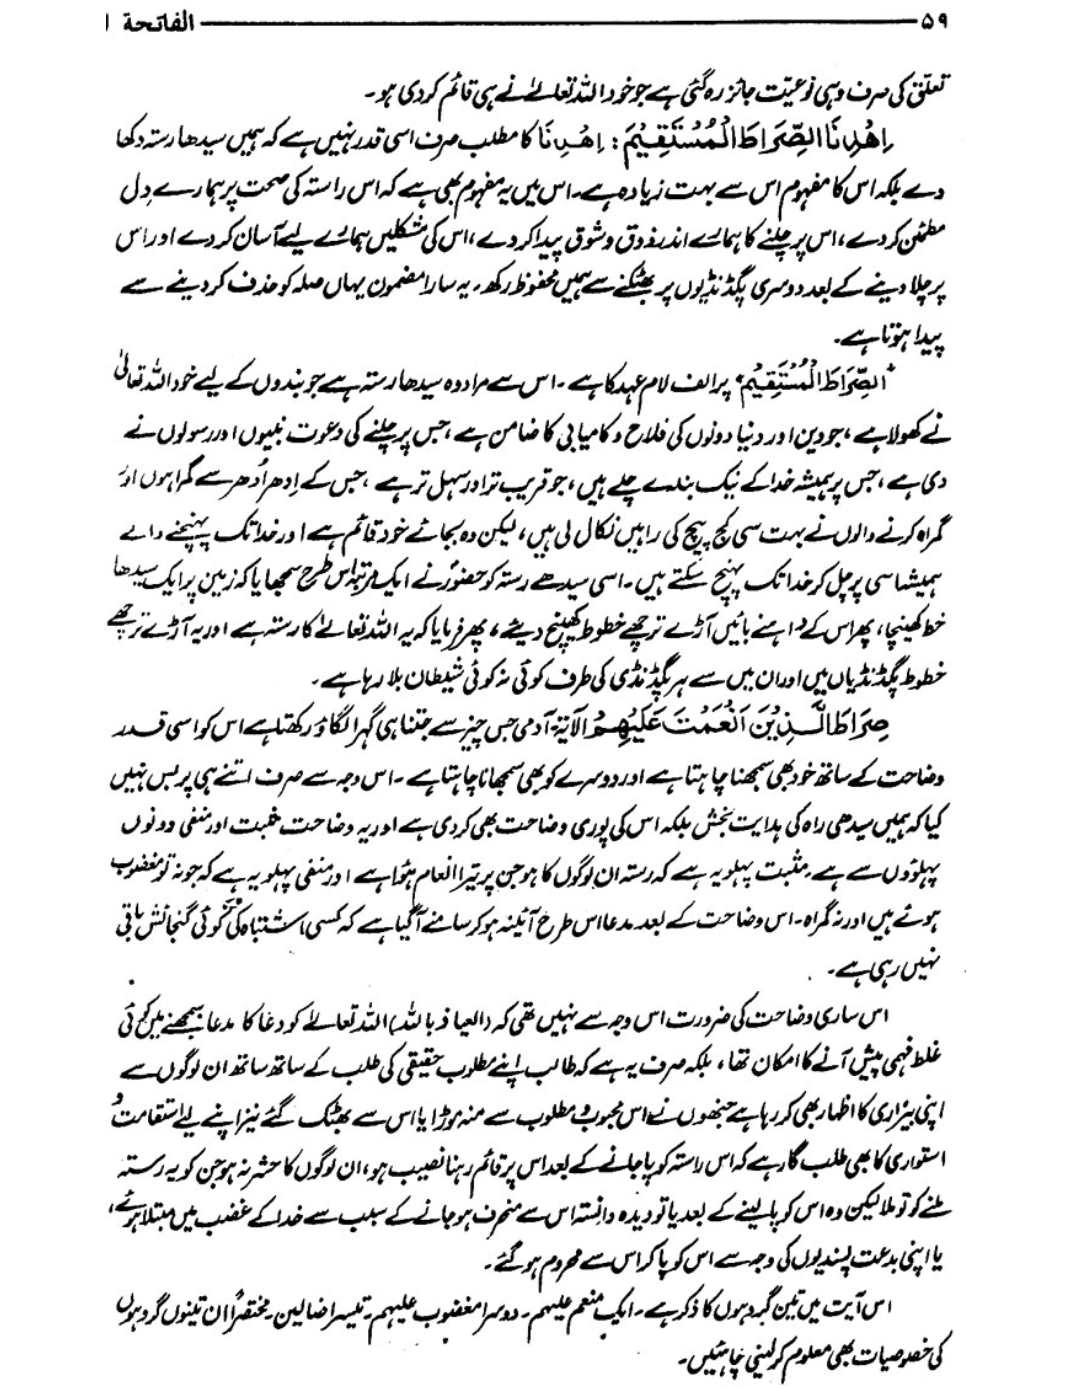 ۵۹ ــــــ الفاتحة ا
تعلّق کی صرف وہی نوعیّت جائز رہ گئی ہے جو خود اللہ تعالےٰ نے ہی قائم کر دی ہو۔
اِهْدِنَا الصِّرَاطَ الْمُسْتَقِيْمَ: اِهْدِنَا کا مطلب صرف اسی قدر نہیں ہے کہ ہمیں سیدھا رستہ دکھا
دے بلکہ اس کا مفہوم اس سے بہت زیادہ ہے۔ اس میں یہ مفہوم بھی ہے کہ اس راستہ کی صحت پر ہمارے دِل
مطمئن کر دے، اس پر چلنے کا ہمارے اندر ذوق و شوق پیدا کر دے، اس کی مشکلیں ہمارے لیے آسان کر دے اور اس
پر چلا دینے کے بعد دوسری پگڈنڈیوں پر بھٹکنے سے ہمیں محفوظ رکھ۔ یہ سارا مضمون یہاں صلہ کو حذف کر دینے سے
پیدا ہوتا ہے۔
"الصِّرَاطَ الْمُسْتَقِيْمَ" پر الف لام عہد کا ہے۔ اس سے مراد وہ سیدھا رستہ ہے جو بندوں کے لیے خود اللہ تعالیٰ
نے کھولا ہے، جو دین اور دنیا دونوں کی فلاح و کامیابی کا ضامن ہے، جس پر چلنے کی دعوت نبیوں اور رسولوں نے
دی ہے، جس پر ہمیشہ خدا کے نیک بندے چلے ہیں، جو قریب تر اور سہل تر ہے، جس کے اِدھر اُدھر سے گمراہوں اور
گمراہ کرنے والوں نے بہت سی کج پیچ کی راہیں نکال لی ہیں، لیکن وہ بجائے خود قائم ہے اور خدا تک پہنچنے والے
ہمیشہ اسی پر چل کر خدا تک پہنچ سکتے ہیں۔ اسی سیدھے رستہ کو حضورؐ نے ایک مرتبہ اس طرح سمجھایا کہ زمین پر ایک سیدھا
خط کھینچا، پھر اس کے داہنے بائیں آڑے ترچھے خطوط کھینچ دیئے، پھر فرمایا کہ یہ اللہ تعالےٰ کا رستہ ہے اور یہ آڑے ترچھے
خطوط پگڈنڈیاں ہیں اور ان میں سے ہر پگڈنڈی کی طرف کوئی نہ کوئی شیطان بلا رہا ہے۔
صِرَاطَ الَّذِيْنَ اَنْعَمْتَ عَلَيْهِمْ الآیۃ: آدمی جس چیز سے جتنا ہی گہرا لگاؤ رکھتا ہے اس کو اسی قدر
وضاحت کے ساتھ خود بھی سمجھنا چاہتا ہے اور دوسرے کو بھی سمجھانا چاہتا ہے۔ اس وجہ سے صرف اتنے ہی پر بس نہیں
کیا کہ ہمیں سیدھی راہ کی ہدایت بخش بلکہ اس کی پوری وضاحت بھی کر دی ہے اور یہ وضاحت مثبت اور منفی دونوں
پہلوؤں سے ہے۔ مثبت پہلو یہ ہے کہ رستہ ان لوگوں کا ہو جن پر تیرا انعام ہوُا ہے اور منفی پہلو یہ ہے کہ جو نہ تو مغضوب
ہوئے ہیں اور نہ گمراہ۔ اس وضاحت کے بعد مدعا اس طرح آئینہ ہو کر سامنے آگیا ہے کہ کسی اشتباہ کی کوئی گنجائش باقی
نہیں رہی ہے۔
اس ساری وضاحت کی ضرورت اس وجہ سے نہیں تھی کہ (العیاذ باللہ) اللہ تعالےٰ کو دعا کا مدعا سمجھنے میں کوئی
غلط فہمی پیش آنے کا امکان تھا، بلکہ صرف یہ ہے کہ طالب اپنے مطلوب حقیقی کی طلب کے ساتھ ساتھ ان لوگوں سے
اپنی بیزاری کا اظہار بھی کر رہا ہے جنھوں نے اس محبوب و مطلوب سے منہ موڑا یا اس سے بھٹک گئے نیز اپنے لیے استقامت و
استواری کا بھی طلب گار ہے کہ اس راستہ کو پا جانے کے بعد اس پر قائم رہنا نصیب ہو، ان لوگوں کا حشر نہ ہو جن کو یہ رستہ
ملنے کو تو ملا لیکن وہ اس کو پا لینے کے بعد یا تو دیدہ و دانستہ اس سے منحرف ہو جانے کے سبب سے خدا کے غضب میں مبتلا ہوئے،
یا اپنی بدعت پسندیوں کی وجہ سے اس کو پا کر اس سے محروم ہو گئے۔
اس آیت میں تین گروہوں کا ذکر ہے۔ ایک منعم علیہم۔ دوسرا مغضوب علیہم۔ تیسرا ضالین۔ مختصراً ان تینوں گروہوں
کی خصوصیات بھی معلوم کر لینی چاہئیں۔